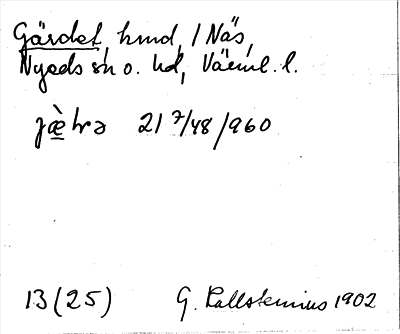 Gärdet, hmd, 1 Näs,
Nyeds sn o. hd, Värml. l.
21 7/48/960
13 (25) G. Kallstenius 1902